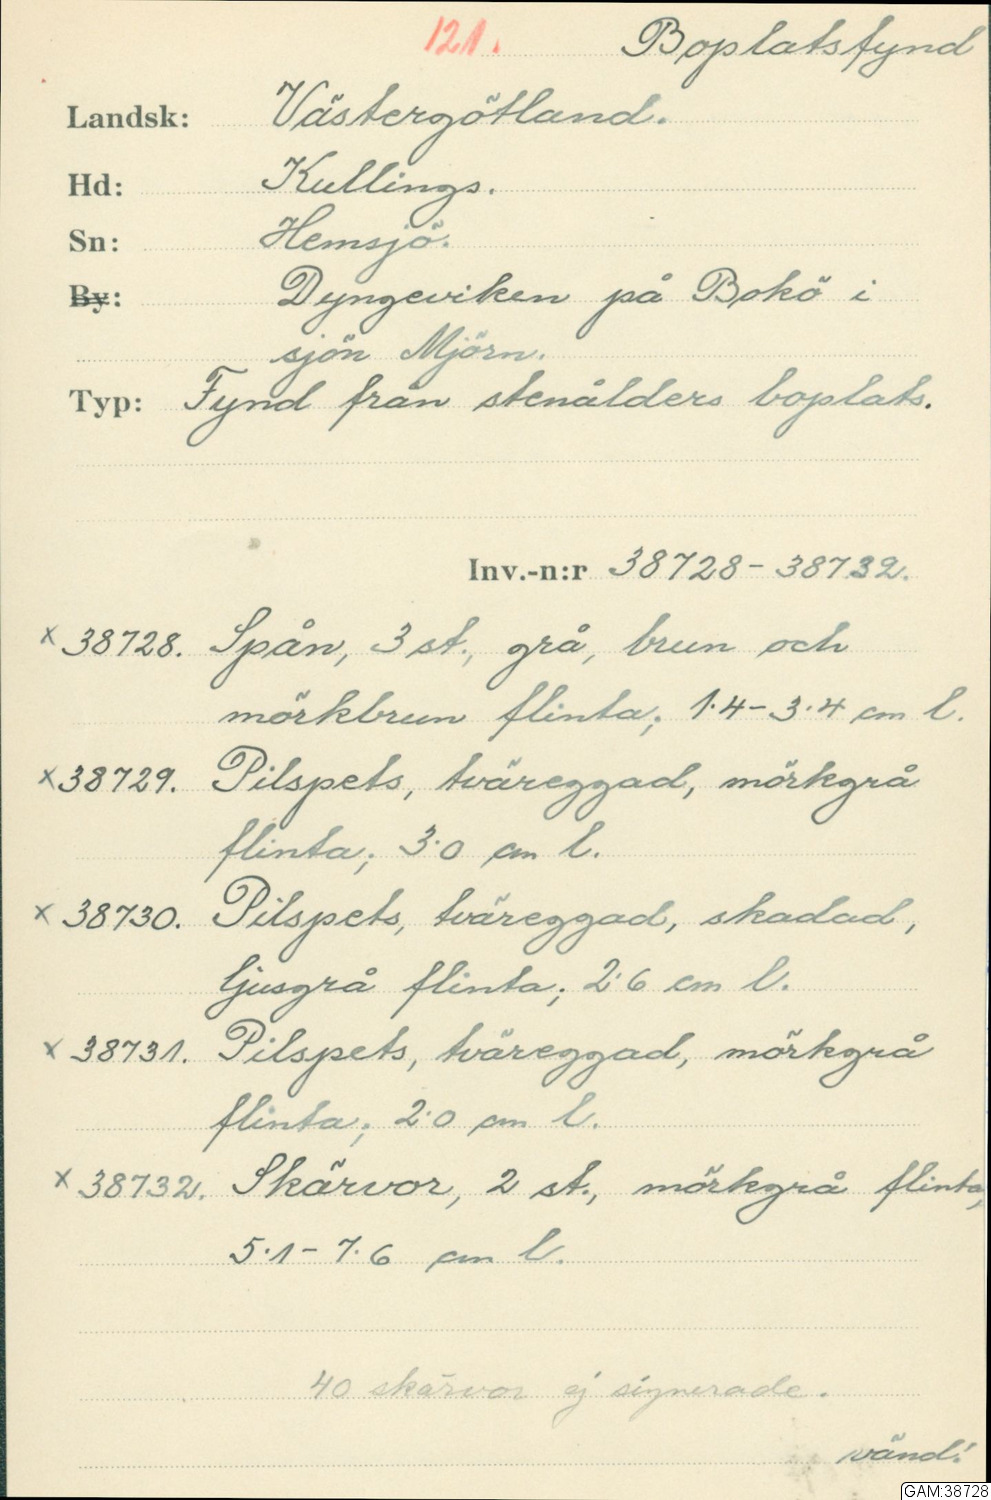 121. Boplatsfynd
Landsk: Västergötland.
Hd: Kullings.
Sn: Hemsjö.
By: Dyngeviken på Bokö i
sjön Mjörn.
Typ: Fynd från stenålders boplats.
Inv.-n:r 38728-38732.
x 38728. Spån, 3 st., grå, brun och
mörkbrun flinta; 1.4-3.4 cm l.
x 38729. Pilspets, tväreggad, mörkgrå
flinta; 3.0 cm l.
x 38730. Pilspets, tväreggad, skadad,
ljusgrå flinta; 2.6 cm l.
x 38731. Pilspets, tväreggad, mörkgrå
flinta; 2.0 cm l.
x 38732. Skärvor, 2 st., mörkgrå flinta,
5.1-7.6 cm l.
40 skärvor ej signerade.
vänd!
GAM:38728